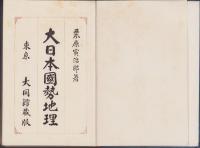 栗原寅治郎著
大日本國勢地理
東京 大同館藏版